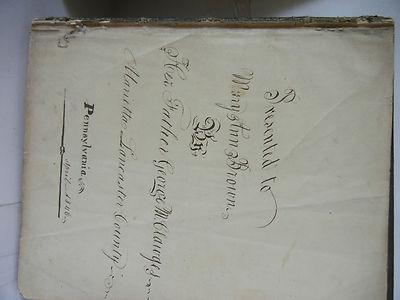 Presented to
Mary Ann Brown
By
Her Father George M. Clauges
Marietta Lancaster County
Pennsylvania
April